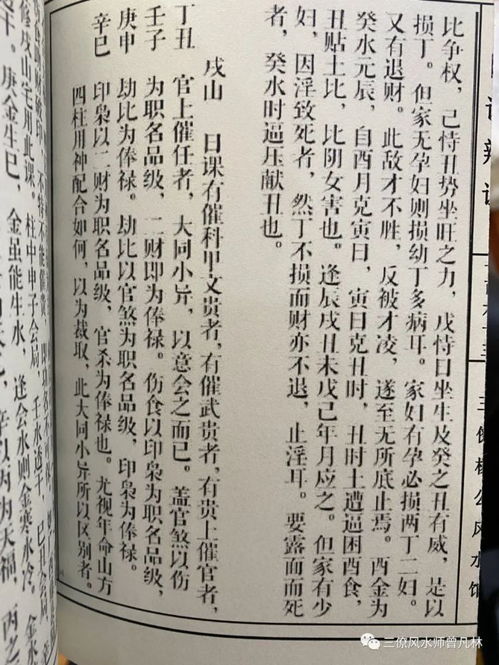 三僚杨公风水馆
比争权，己恃丑势坐旺之力，戊恃日坐生及癸之丑有威，是以
损丁。但家无孕妇则损幼丁多病耳。家妇有孕必损两丁一妇。
又有退财。此敌才不胜，反被才凌，遂至无所底止焉。酉金为
癸水元辰，自酉月克寅日，寅日克丑时，丑时土遭逼困酉食，
丑贴土比，比阴女害也。逢辰戌丑未戊己年月应之。但家有少
妇，因淫致死者，然丁不损而财亦不退，止淫耳。要露面而死
者，癸水时逼压献丑也。
戌山 日课有催科甲文贵者，有催武贵者，有贵上催官者，
丁丑 官上催任者，大同小异，以意会之而已。盖官煞以伤
壬子 为职名品级，二财即为俸禄。伤食以印枭为职名品级，
庚申 劫比为俸禄。劫比以官煞为职名品级，印枭为俸禄。
辛巳 印枭以二财为职名品级，官杀为俸禄也。尤视年命山方
四柱用神配合如何，以为裁取，此大同小异所以区别者。
柱中申子会局，壬水透干
修戌山宅用此课
庚金生巳，金虽能生水，逢会水则金寒水冷。
三僚风水师曾凡林